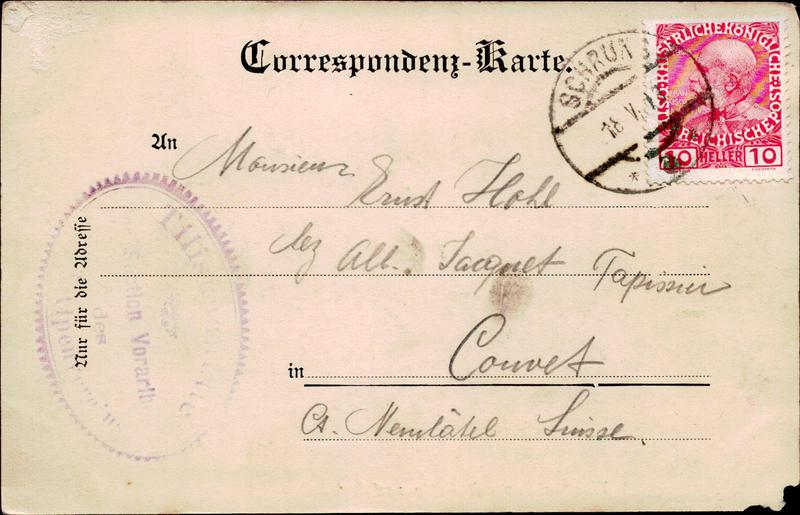 Correspondenz-Karte.
SCHRUN
18. V.
KAISERLICHE KÖNIGLICHE
ÖSTERREICHISCHE
10 HELLER 10
An Monsieur
Ernst Hohl
chez Alb. Jacquet Tapissier
in Couvet
Ct. Neuchâtel Suisse.
Nur für die Adresse
Section Vorarlb
des